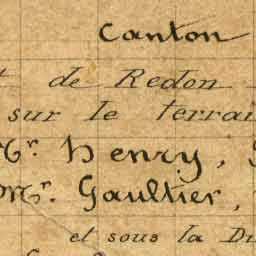 Canton
t de Redon
sur le terrai
Mr. Henry,
Mr. Gaultier,
et sous la Du